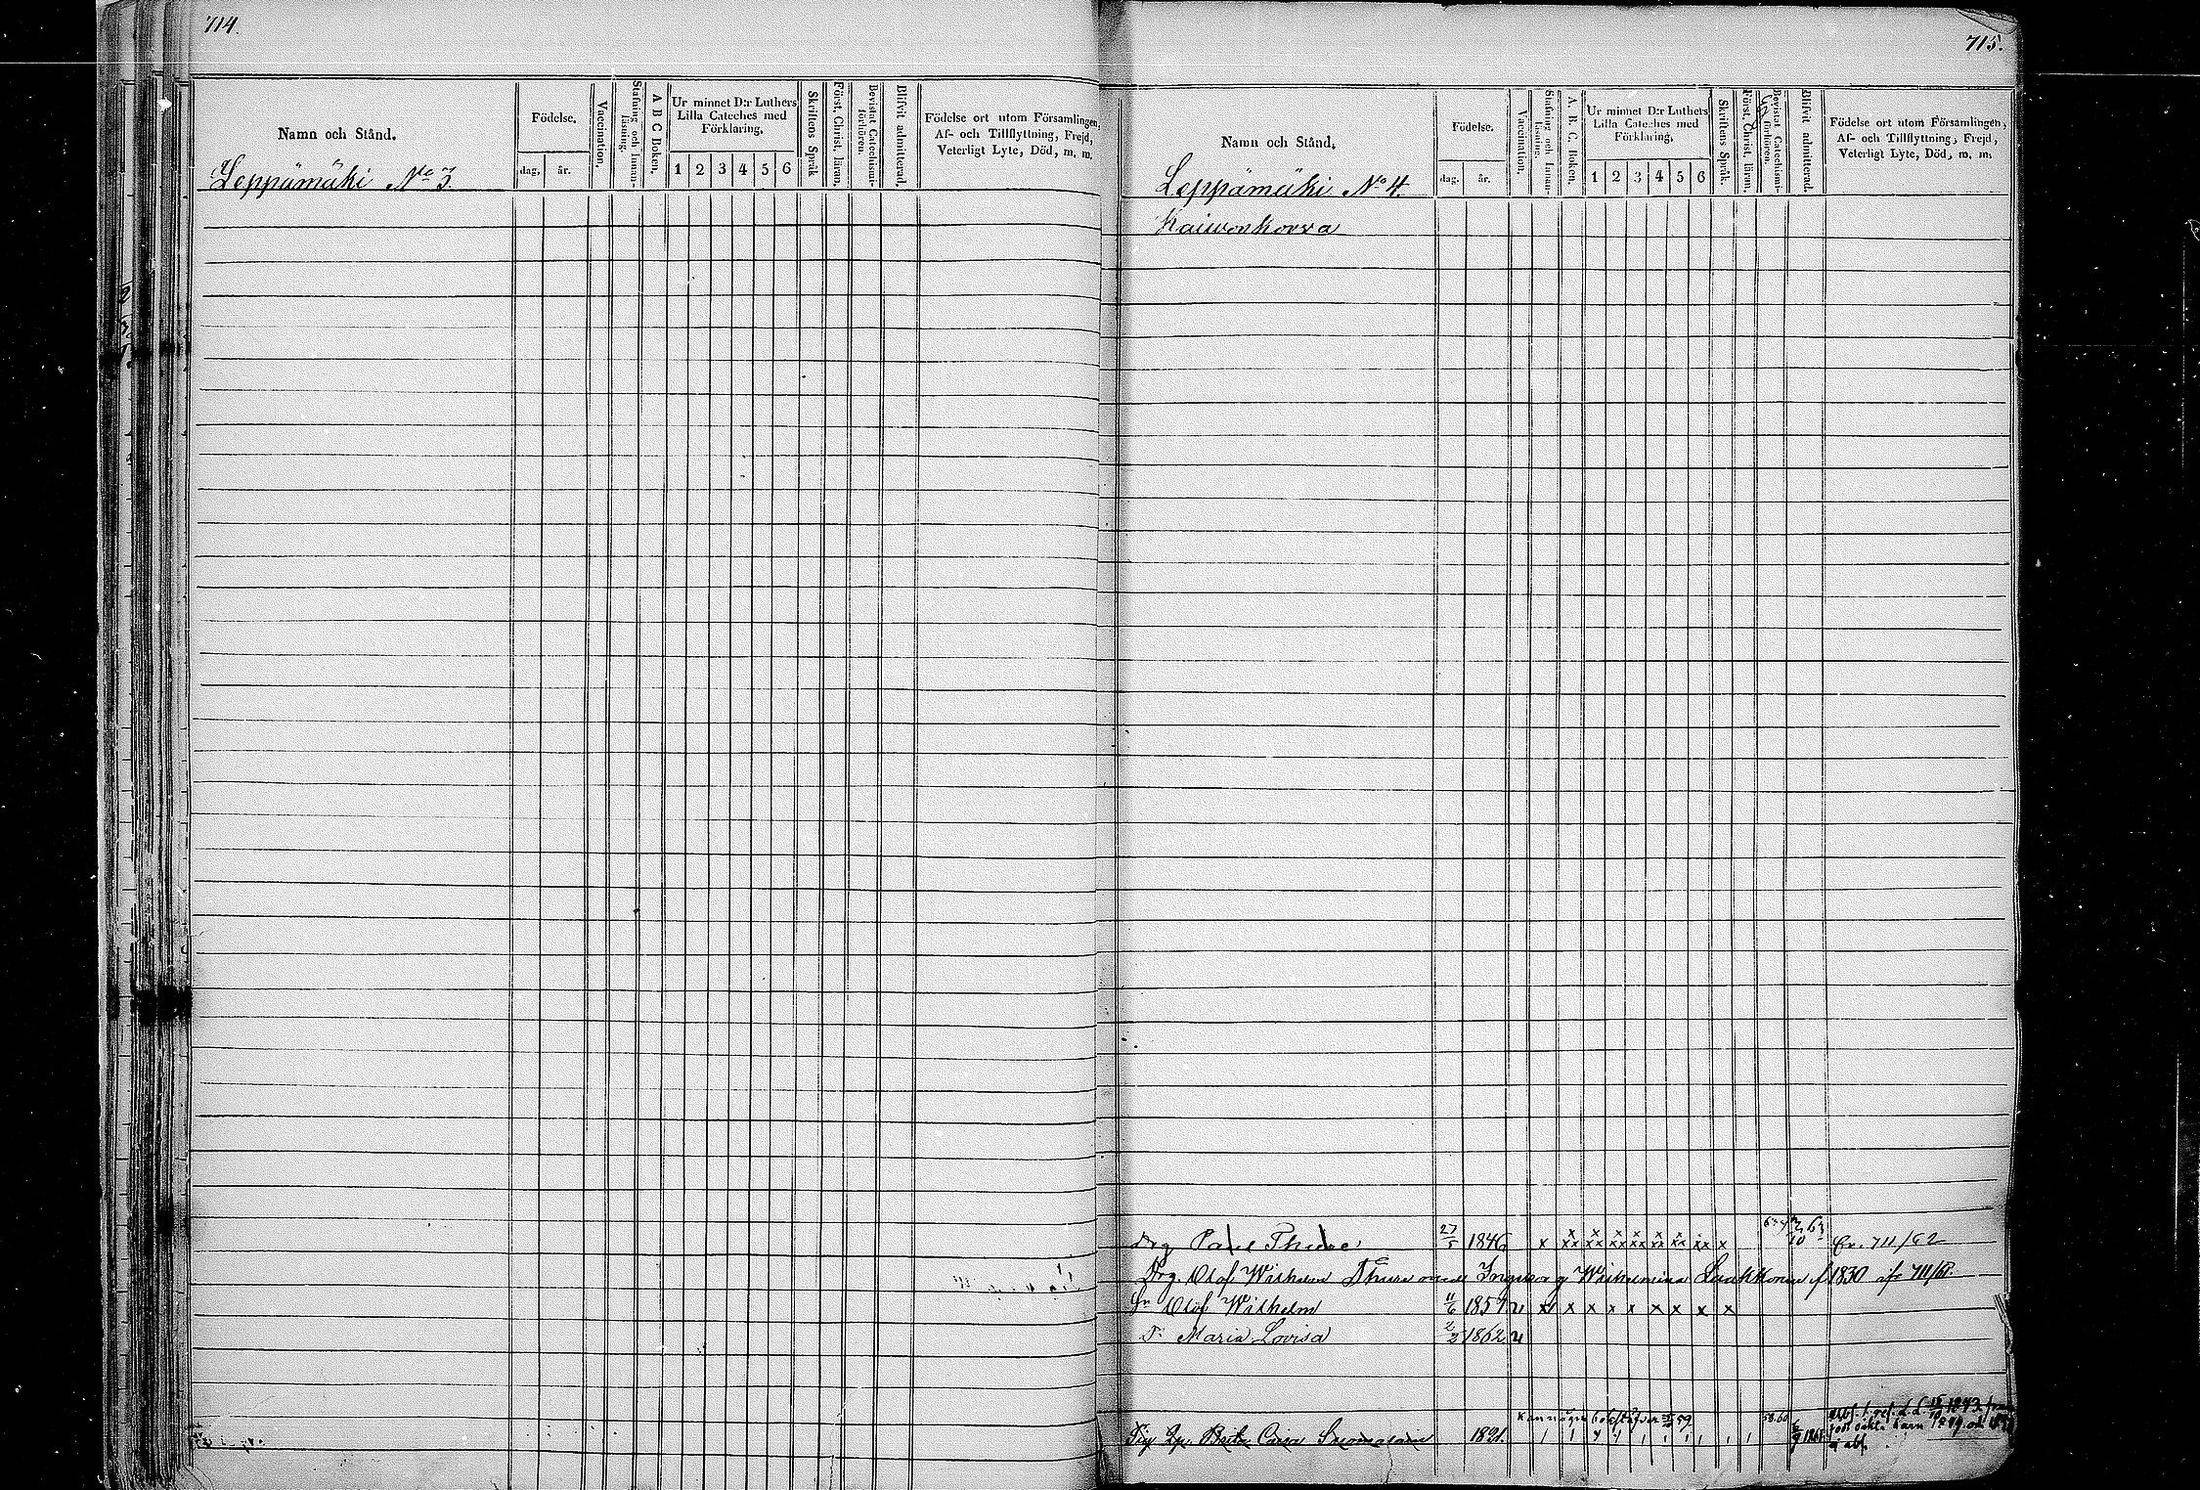 714.
Namn och Stånd.
Födelse.
dag, år.
Vaccination.
Stafning och Innan-läsning.
A B C Boken.
Ur minnet D:r Luthers
Lilla Cateches med
Förklaring.
1 2 3 4 5 6
Skriftens Språk
Först. Christ. läran.
Bevistat Catechismi-förhören.
Blifvit admitterad.
Födelse ort utom Församlingen,
Af- och Tillflyttning, Frejd,
Veterligt Lyte, Död, m. m.
Leppämäki No 3.
715.
Namn och Stånd.
Födelse.
dag. år.
Vaccination.
Stafning och Innan-läsning.
A. B. C. Boken.
Ur minnet D:r Luthers
Lilla Cateches med
Förklaring.
1 2 3 4 5 6
Skriftens Språk.
Först. Christ. läran.
Bevistat Catechismi-förhören.
Blifvit admitterad.
Födelse ort utom Församlingen,
Af- och Tillflyttning, Frejd,
Veterligt Lyte, Död, m. m.
Leppämäki No 4.
Kaiwonkorva
Drg Paul Thure 27/5 1846 x xx xx xx xx xx xx xx x 711/62
Drg. Olof Wilhelm Thure Wilhelmina 1830 711/61.
Sn Olof Wilhelm 11/6 1857 x x x x x x x x x
D. Maria Lovisa 2/2 1862
Brita Caisa 1821.